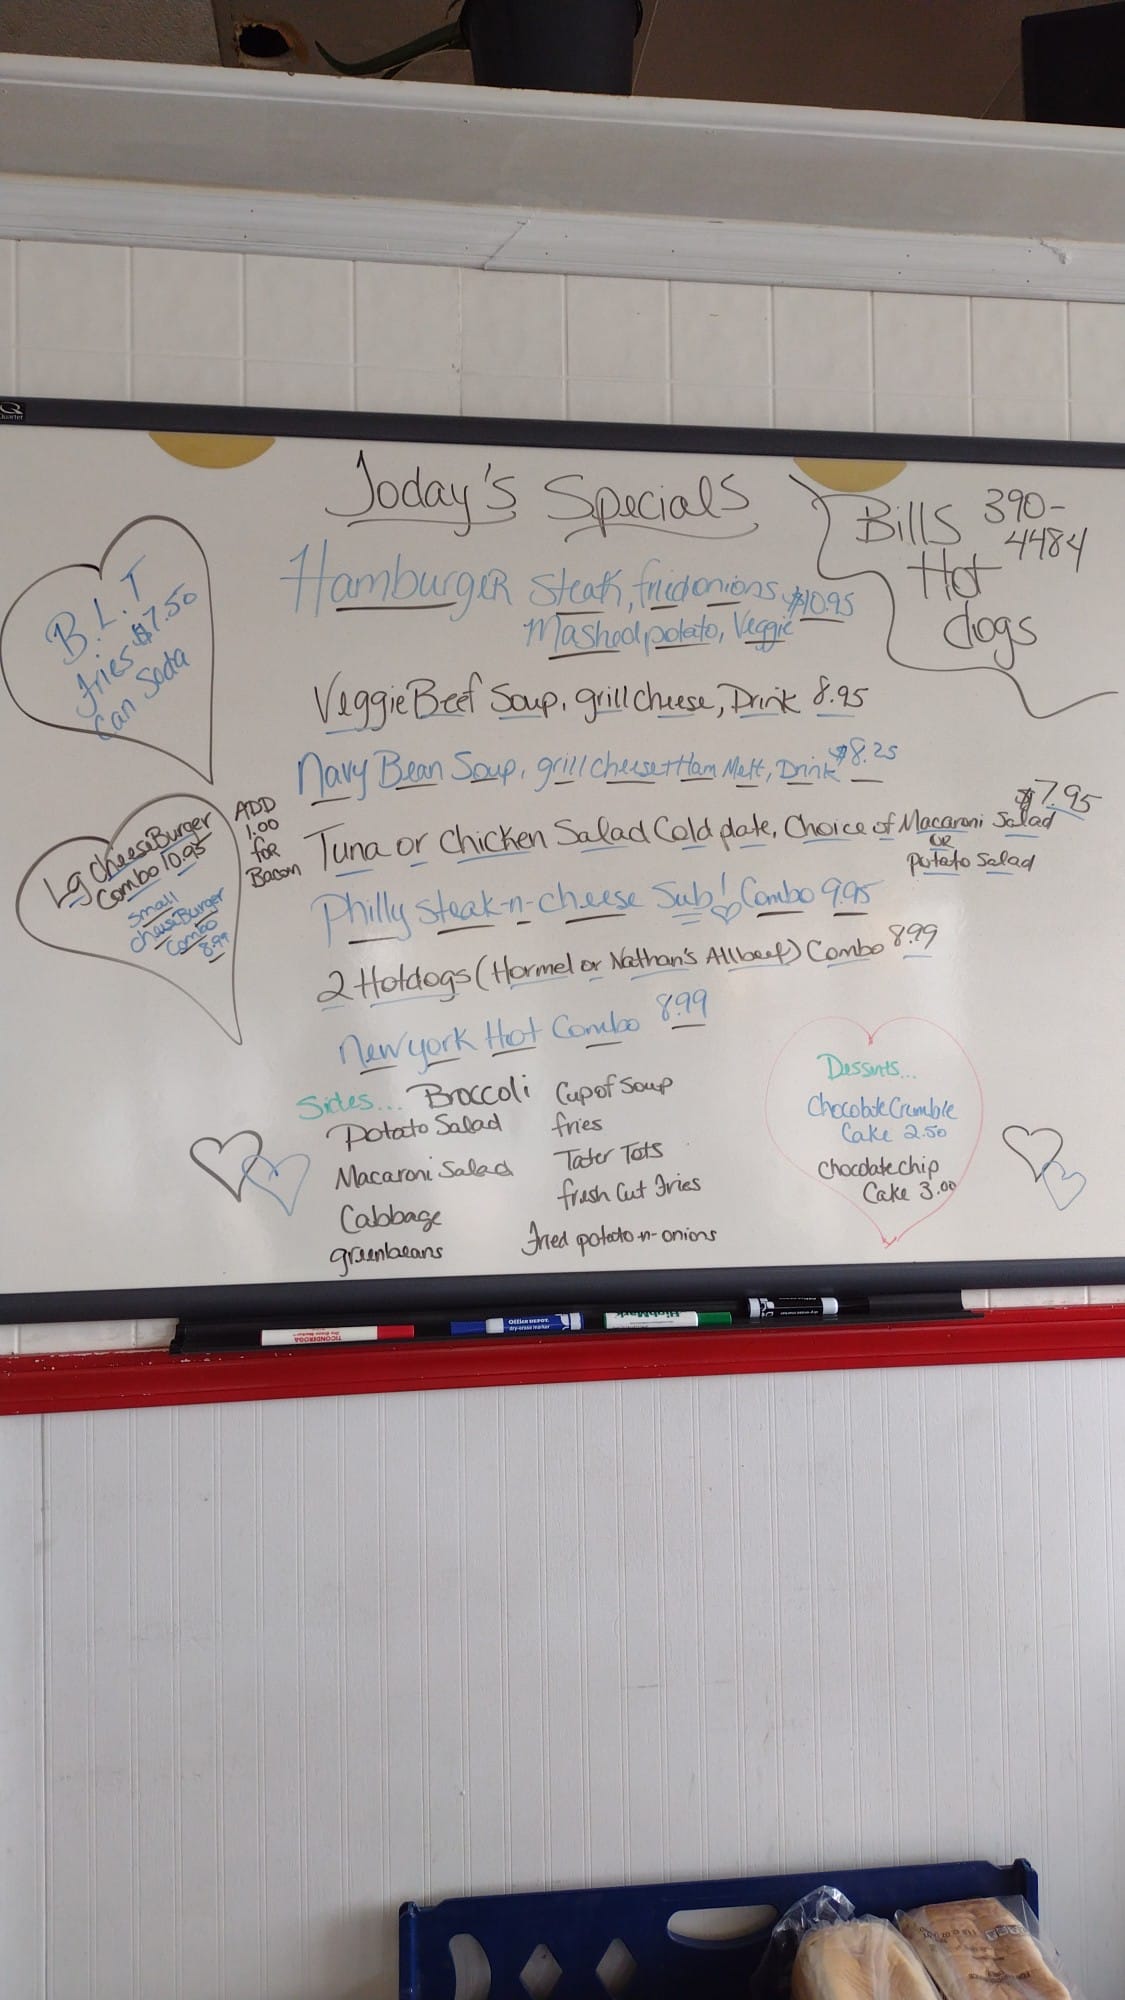 Quartet
Today's Specials
Bills 390-
4484
Hot
dogs
Hamburger Steak, fried onions $10.95
Mashed potato, Veggie
Veggie Beef Soup, grill cheese, Drink 8.95
Navy Bean Soup, grill cheese + Ham Melt, Drink $8.25
Tuna or Chicken Salad Cold plate, Choice of Macaroni Salad $7.95
OR
potato Salad
Philly Steak-n-cheese Sub! Combo 9.95
2 Hotdogs (Hormel or Nathan's All beef) Combo 8.99
New york Hot Combo 8.99
B.L.T
fries $7.50
Can Soda
Lg CheeseBurger
Combo 10.95
Small
CheeseBurger
Combo
8.99
ADD
1.00
for
Bacon
Sides... Broccoli
Potato Salad
Macaroni Salad
Cabbage
greenbeans
Cup of Soup
fries
Tater Tots
fresh Cut Fries
Fried potato-n-onions
Desserts...
Chocolate Crumble
Cake 2.50
Chocolate chip
Cake 3.00
TICONDEROGA
Office DEPOT
dry-erase marker